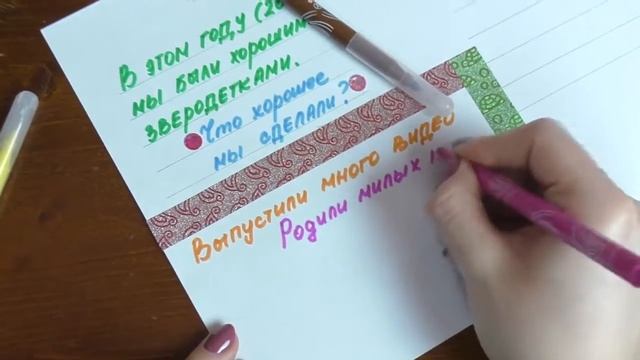 В этом году (20
мы были хорошими
зверодетками.
Что хорошее
мы сделали?
Выпустили много видео
Родили милых